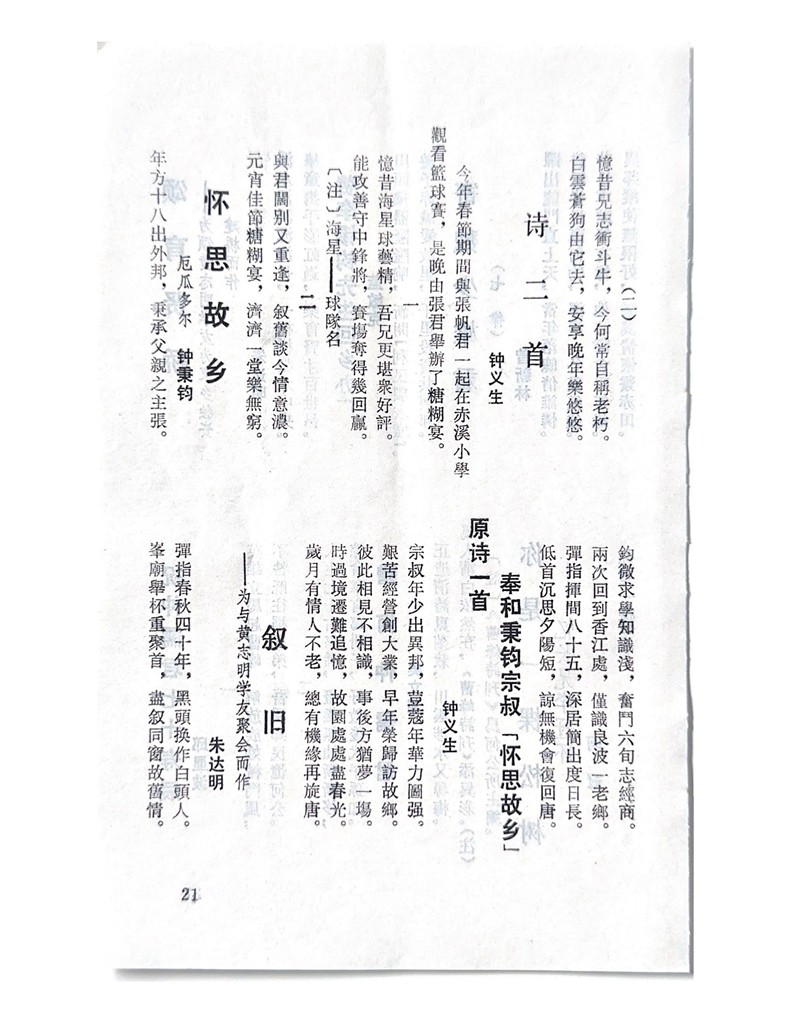 (二)
憶昔兄志衝斗牛，今何常自稱老朽。
白雲蒼狗由它去，安享晚年樂悠悠。
诗二首
钟义生
今年春節期間與張帆君一起在赤溪小學
觀看籃球賽，是晚由張君舉辦了糖糊宴。
一
憶昔海星球藝精，吾兄更堪衆好評。
能攻善守中鋒將，賽場奪得幾回贏。
〔注〕海星——球隊名
二
與君闊别又重逢，叙舊談今情意濃。
元宵佳節糖糊宴，濟濟一堂樂無窮。
怀思故乡
厄瓜多尔 钟秉钧
年方十八出外邦，秉承父親之主張。
鈞微求學知識淺，奮鬥六旬志經商。
兩次回到香江處，僅識良波一老鄉。
彈指揮間八十五，深居簡出度日長。
低首沉思夕陽短，諒無機會復回唐。
奉和秉钧宗叔「怀思故乡」
原诗一首
钟义生
宗叔年少出異邦，荳蔻年華力圖强。
艱苦經營創大業，早年榮歸訪故鄉。
彼此相見不相識，事後方猶夢一場。
時過境遷難追憶，故園處處盡春光。
歲月有情人不老，總有機緣再旋唐。
叙旧
——为与黄志明学友聚会而作
朱达明
彈指春秋四十年，黑頭换作白頭人。
峯廟舉杯重聚首，盡叙同窗故舊情。
21